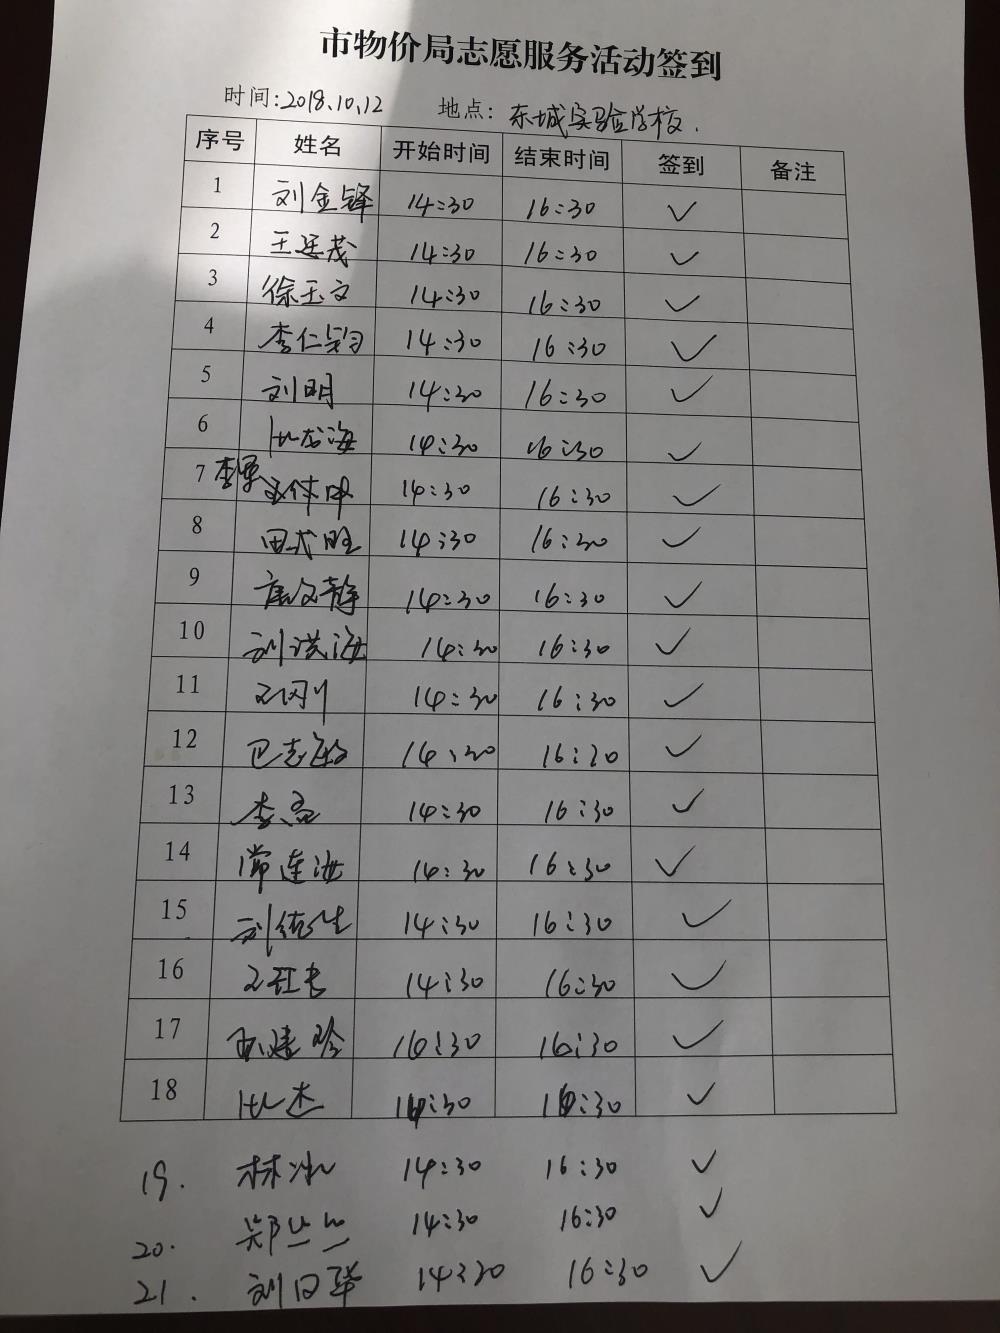 市物价局志愿服务活动签到
时间:2018.10.12 地点: 东城实验学校.
序号 姓名 开始时间 结束时间 签到 备注
1 刘金锋 14:30 16:30 ✓
2 王廷茂 14:30 16:30 ✓
3 徐玉文 14:30 16:30 ✓
4 李仁钧 14:30 16:30 ✓
5 刘明 14:30 16:30 ✓
6 海 14:30 16:30 ✓
7 李 14:30 16:30 ✓
8 田 旺 14:30 16:30 ✓
9 文静 14:30 16:30 ✓
10 刘洪海 14:30 16:30 ✓
11 王刚 14:30 16:30 ✓
12 巴志敏 14:30 16:30 ✓
13 李 14:30 16:30 ✓
14 常连海 14:30 16:30 ✓
15 刘德生 14:30 16:30 ✓
16 王 14:30 16:30 ✓
17 建玲 16:30 16:30 ✓
18 杰 14:30 16:30 ✓
19. 林冰 14:30 16:30 ✓
20. 郑丝丝 14:30 16:30 ✓
21. 刘日华 14:30 16:30 ✓